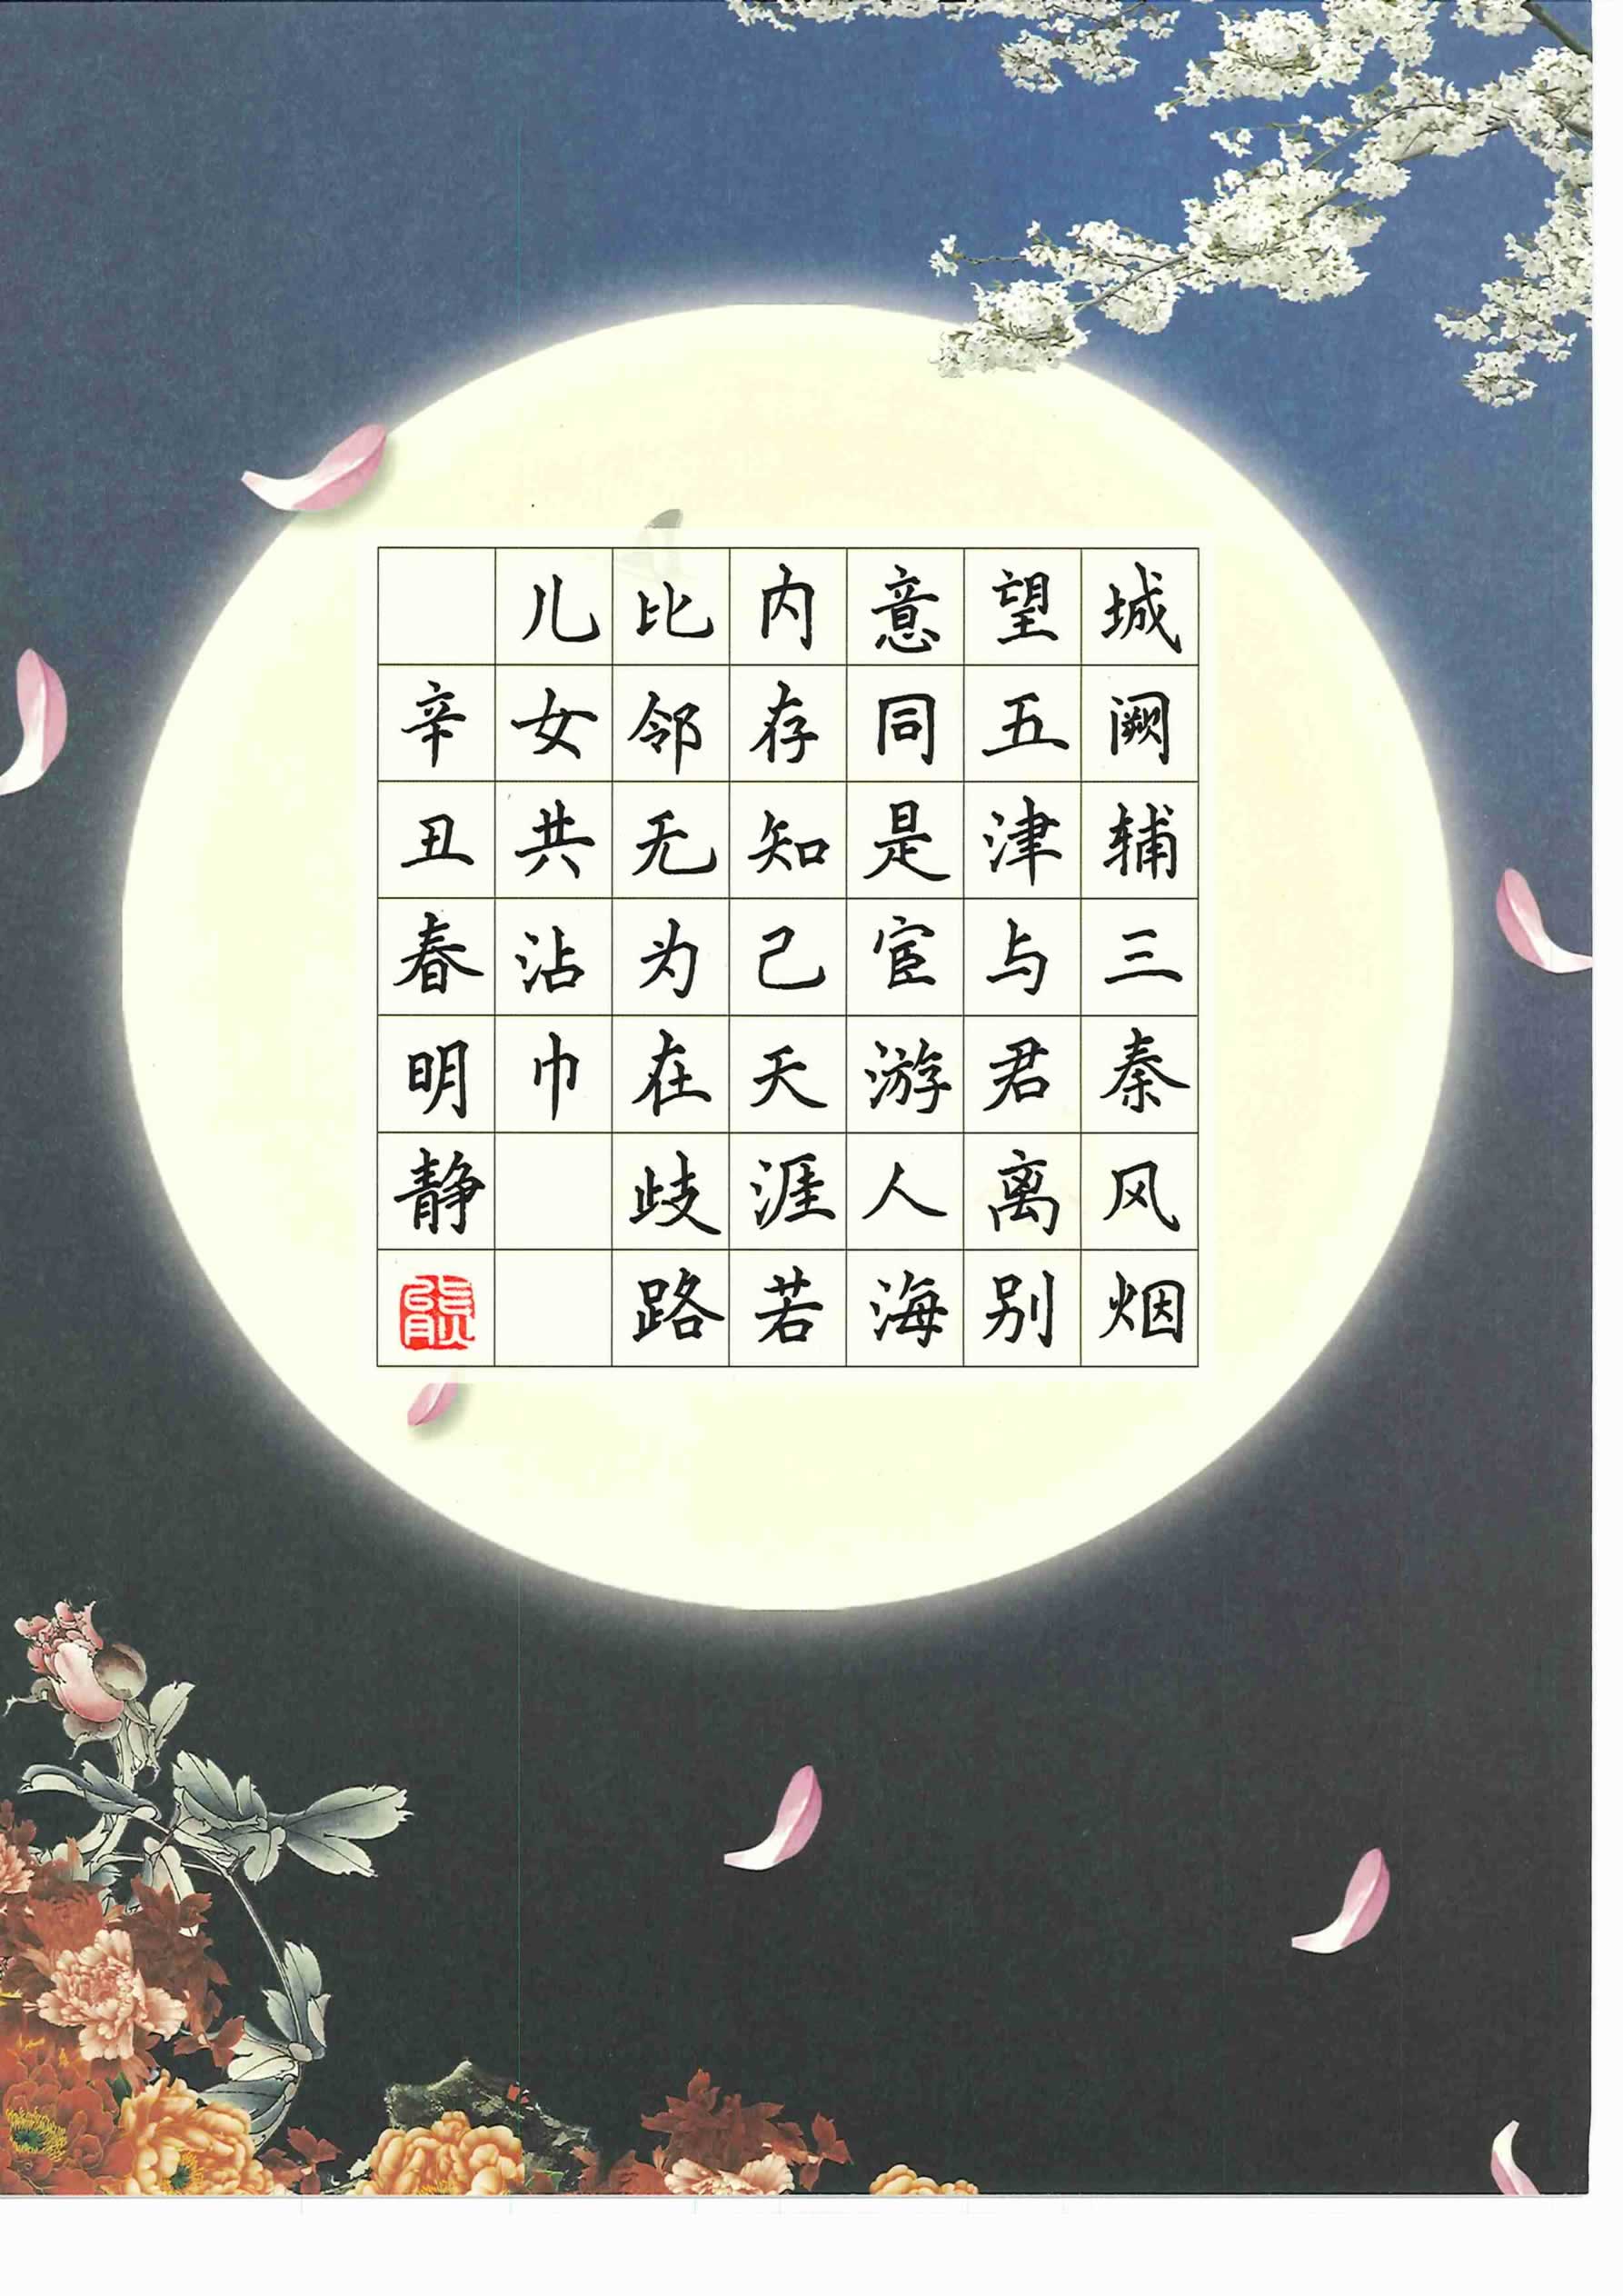 城阙辅三秦风烟
望五津与君离别
意同是宦游人海
内存知己天涯若
比邻无为在歧路
儿女共沾巾
辛丑春明静